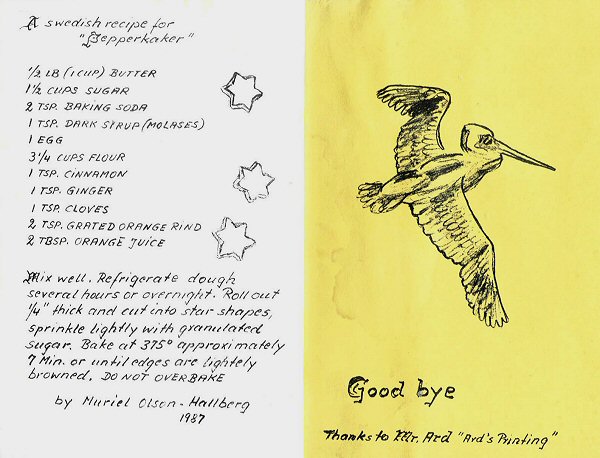 A swedish recipe for
"Pepperkaker"
1/2 LB (1 CUP) BUTTER
1 1/2 CUPS SUGAR
2 TSP. BAKING SODA
1 TSP. DARK SYRUP (MOLASES)
1 EGG
3 1/4 CUPS FLOUR
1 TSP. CINNAMON
1 TSP. GINGER
1 TSP. CLOVES
2 TSP. GRATED ORANGE RIND
2 TBSP. ORANGE JUICE
Mix well. Refrigerate dough
several hours or overnight. Roll out
1/4" thick and cut into star shapes,
sprinkle lightly with granulated
sugar. Bake at 375° approximately
7 Min. or until edges are lightely
browned. DO NOT OVERBAKE
by Muriel Olson-Hallberg
1987
Good bye
Thanks to Mr. Ard "Ard's Printing"